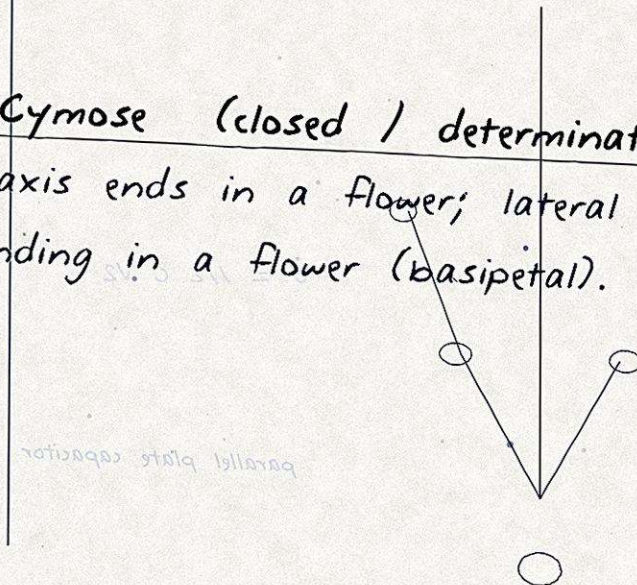 Cymose (closed ) determinat
axis ends in a flower; lateral
nding in a flower (basipetal).
parallel plate capacitor